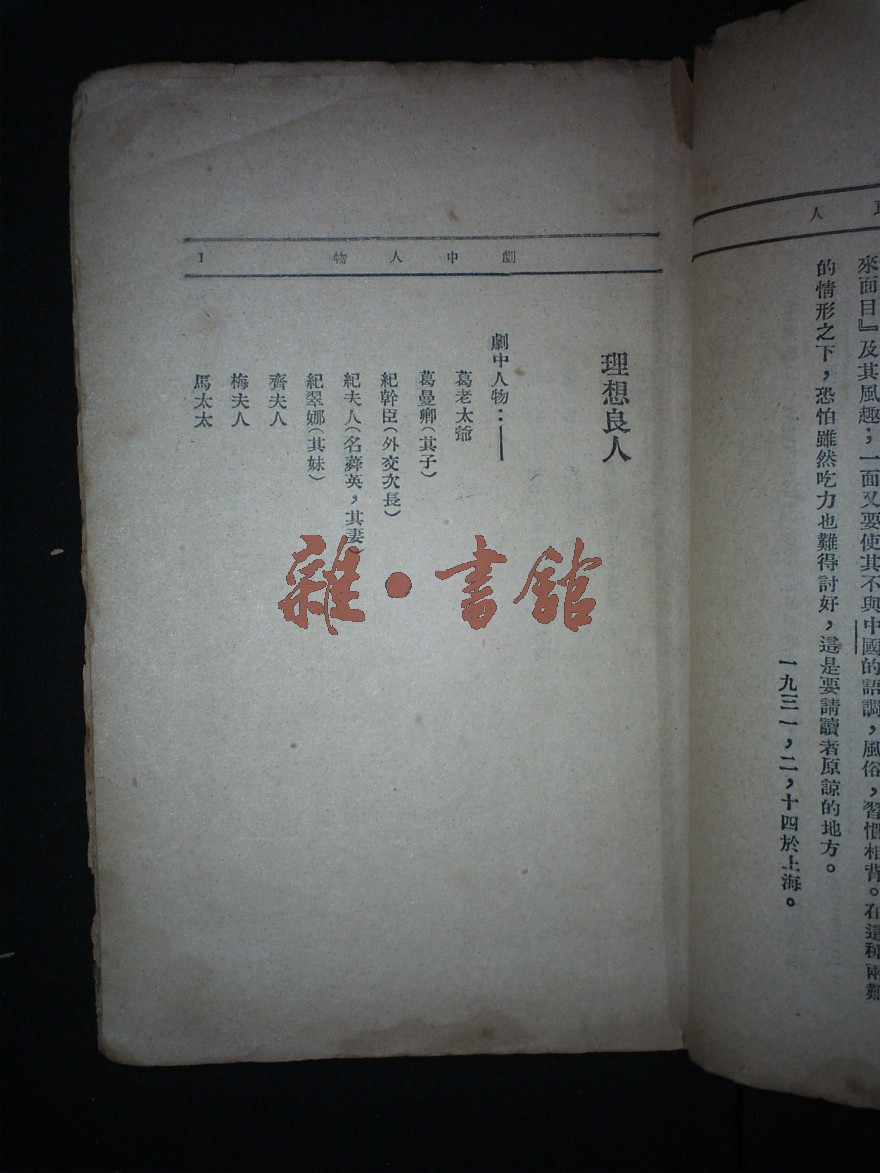 人
來面目』及其風趣；一面又要使其不與中國的語調，風俗，習慣相背。在這種兩難
的情形之下，恐怕雖然吃力也難得討好，這是要請讀者原諒的地方。
一九三一，二，十四於上海。
劇中人物
1
理想良人
劇中人物：——
葛老太爺
葛曼卿（其子）
紀幹臣（外交次長）
紀夫人（名蕣英，其妻）
紀翠娜（其妹）
齊夫人
梅夫人
馬太太
雜·書館